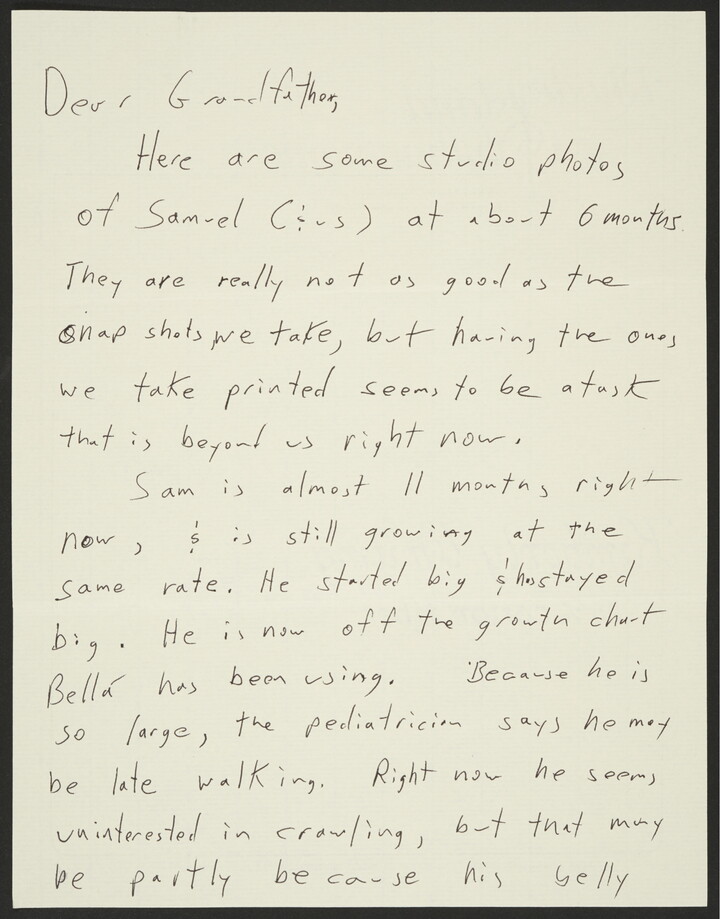 Dear Grandfather,
Here are some studio photos
of Samuel (& us) at about 6 months.
They are really not as good as the
snap shots we take, but having the ones
we take printed seems to be a task
that is beyond us right now.
Sam is almost 11 months right
now, & is still growing at the
same rate. He started big & has stayed
big. He is now off the growth chart
Bella has been using. Because he is
so large, the pediatrician says he may
be late walking. Right now he seems
uninterested in crawling, but that may
be partly because his belly